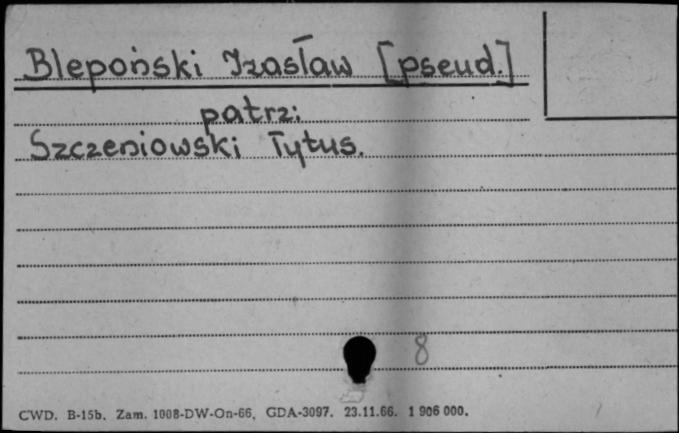 Blepoński Izasław [pseud.]
patrz:
Szczeniowski Tytus.
8
CWD. B-15b. Zam. 1008-DW-On-66. GDA-3097. 23.11.66. 1 906 000.